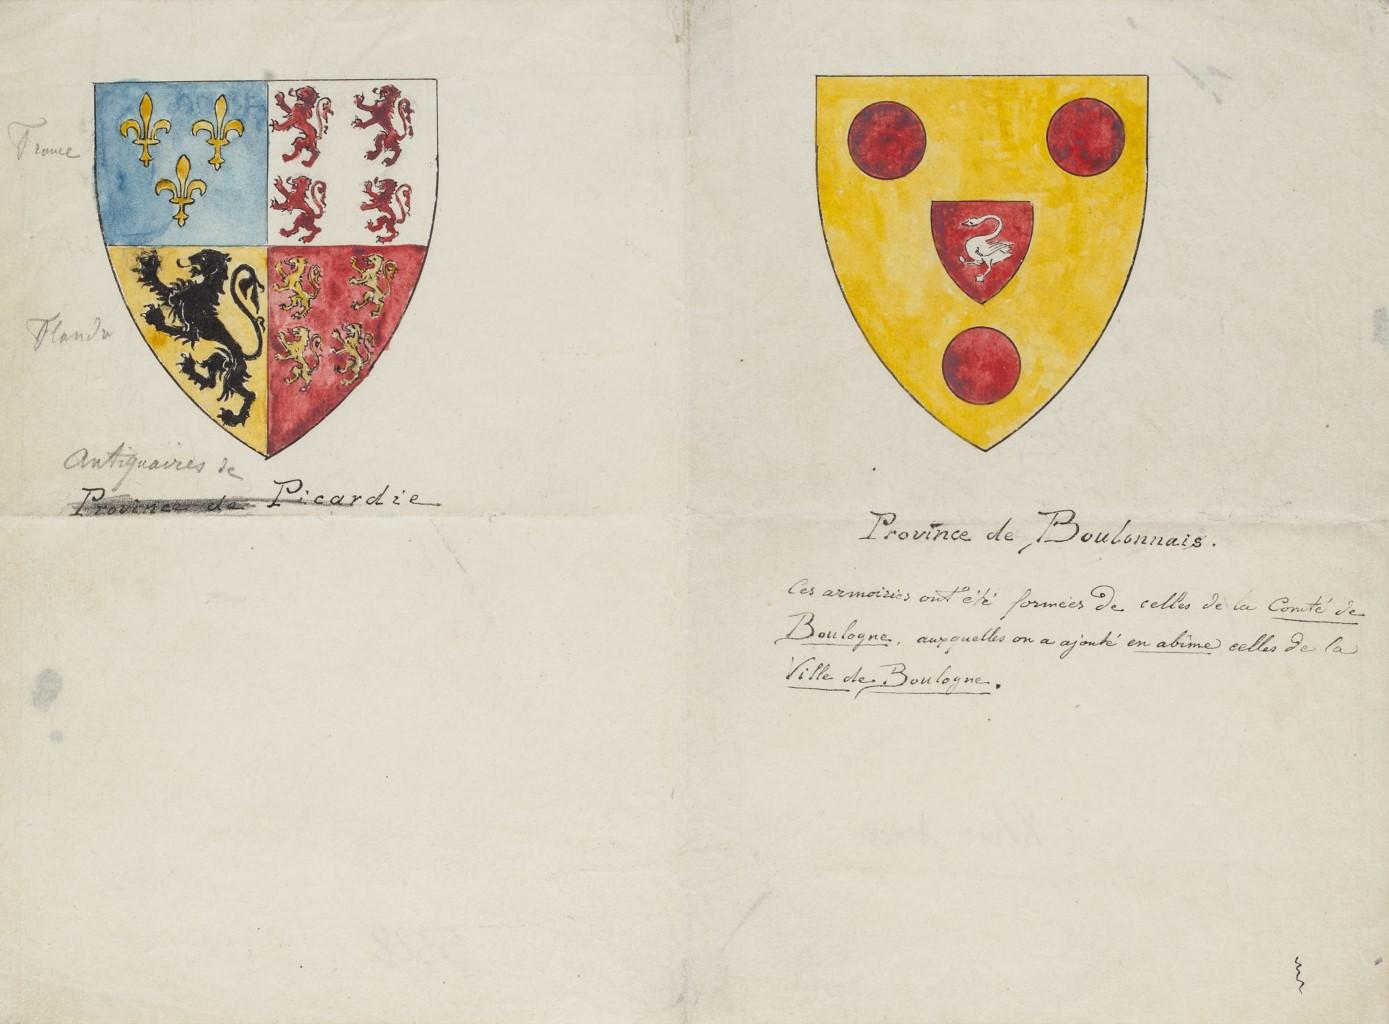 France
Flandre
Antiquaires de
Province de Picardie
Province de Boulonnais.
Ces armoiries ont été formées de celles de la Comté de
Boulogne, auxquelles on a ajouté en abîme celles de la
Ville de Boulogne.